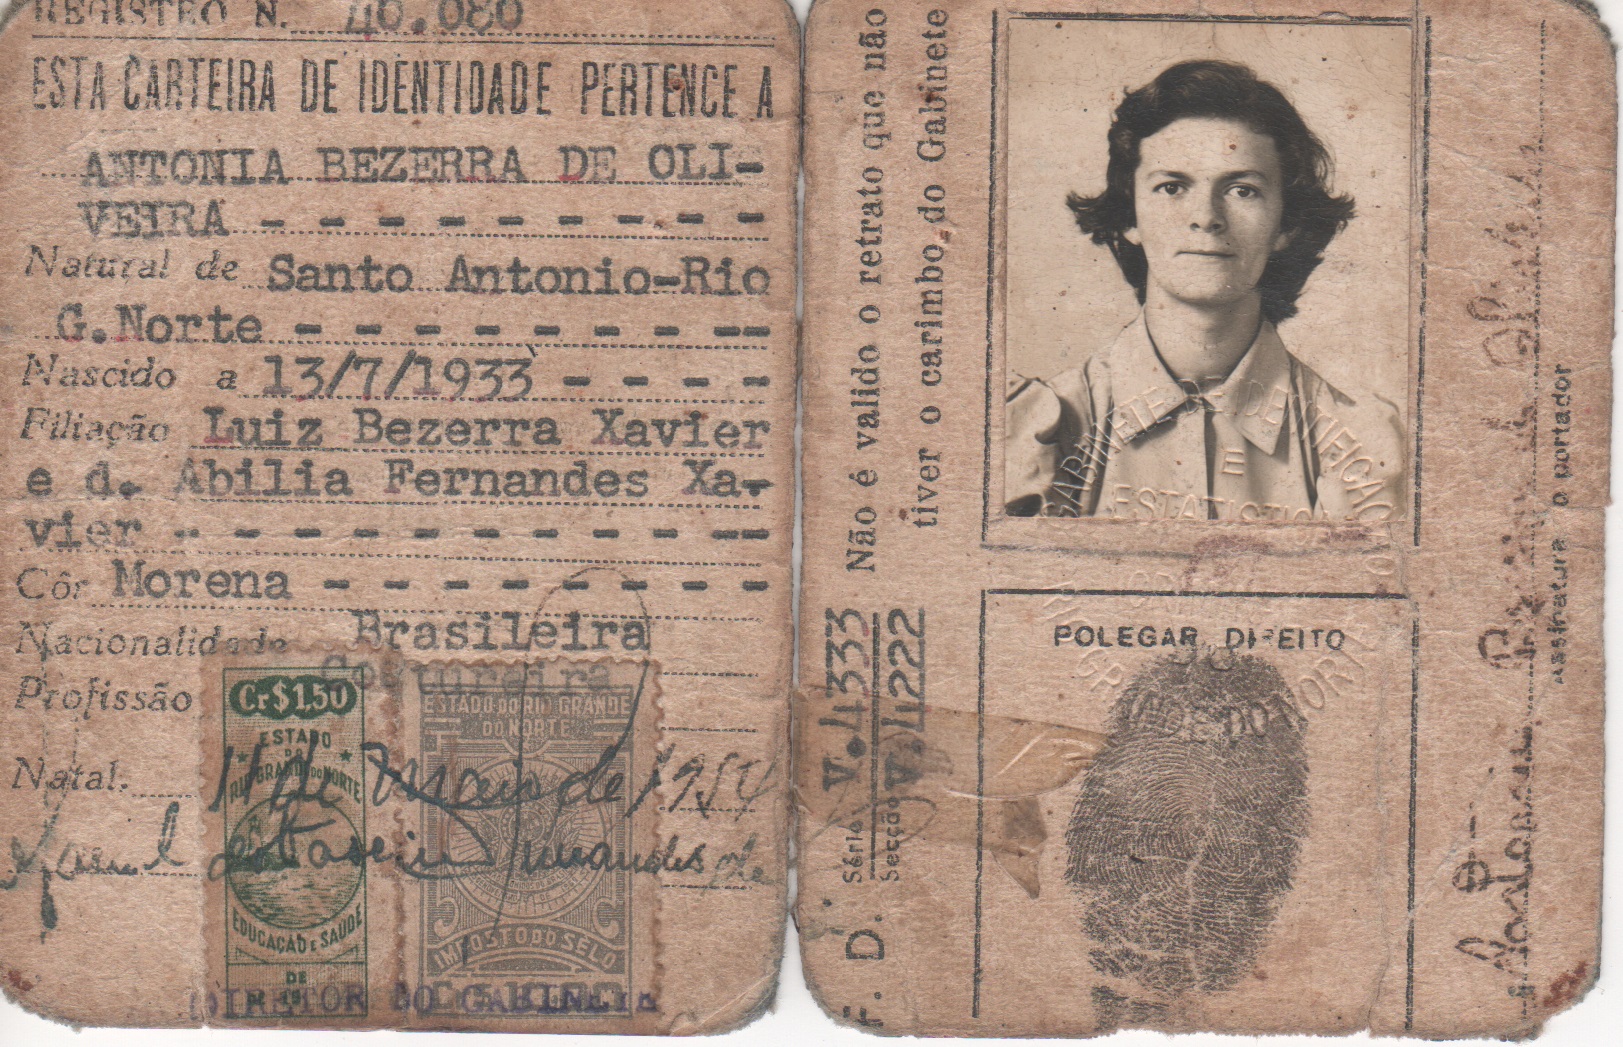 REGISTRO N. 40.080
ESTA CARTEIRA DE IDENTIDADE PERTENCE A
ANTONIA BEZERRA DE OLI-
VEIRA - - - - - - - - - -
Natural de Santo Antonio-Rio
G.Norte - - - - - - - - - --
Nascido a 13/7/1933 - - - -
Filiação Luiz Bezerra Xavier
e d. Abilia Fernandes Xa-
vier - - - - - - - - - - --
Côr Morena - - - - - - - -
Nacionalidade Brasileira
Profissão Costureira
Natal. 11 de Maio de 1954
DIRETOR DO GABINETE
Cr$1,50
ESTADO
DO
RIO GRANDE DO NORTE
EDUCAÇÃO E SAUDE
DE
ESTADO DO RIO GRANDE
DO NORTE
IMPOSTO DO SÊLO
Não é valido o retrato que não
tiver o carimbo do Gabinete
F. D.
Série V.4333
Secção V.4222
GABINETE DE IDENTIFICAÇÃO
E
ESTATISTICA
RIO GRANDE DO NORTE
POLEGAR DIREITO
Antonia Bezerra de Oliveira
Assinatura do portador